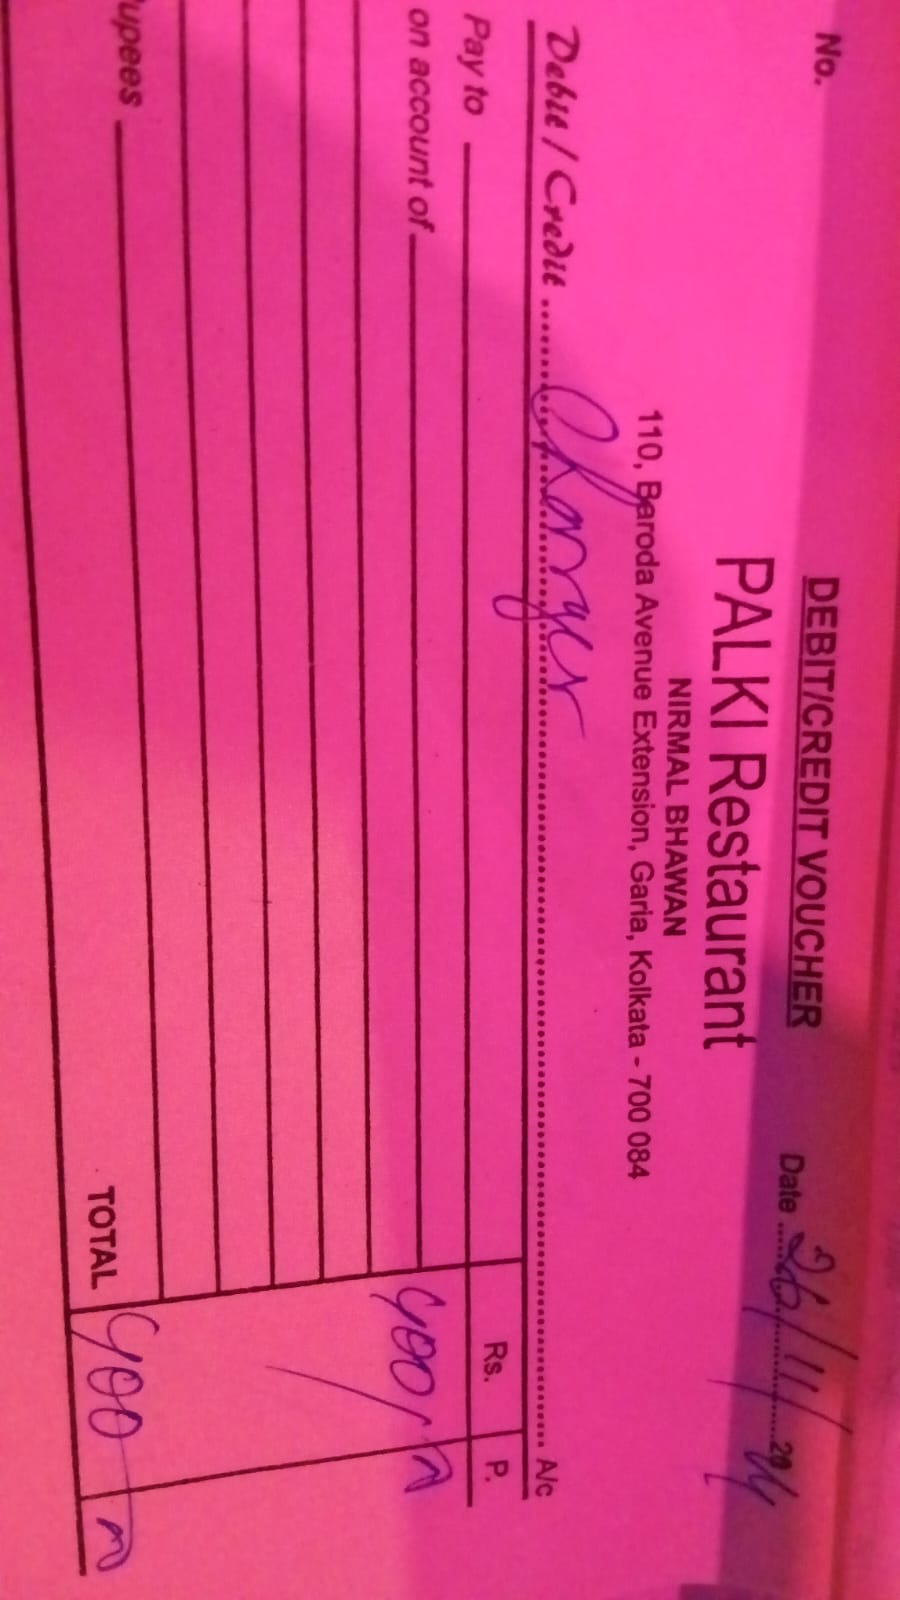 No.
DEBIT/CREDIT VOUCHER
Date 26/11/2024
PALKI Restaurant
NIRMAL BHAWAN
110, Baroda Avenue Extension, Garia, Kolkata - 700 084
Debit / Credit A/c
Pay to Rs. P.
on account of
upees TOTAL